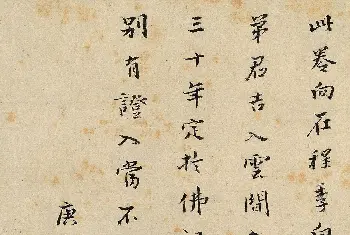 此卷向在程季白
弟君吉入雲間
三十年定於佛
別有證入嘗不
庚